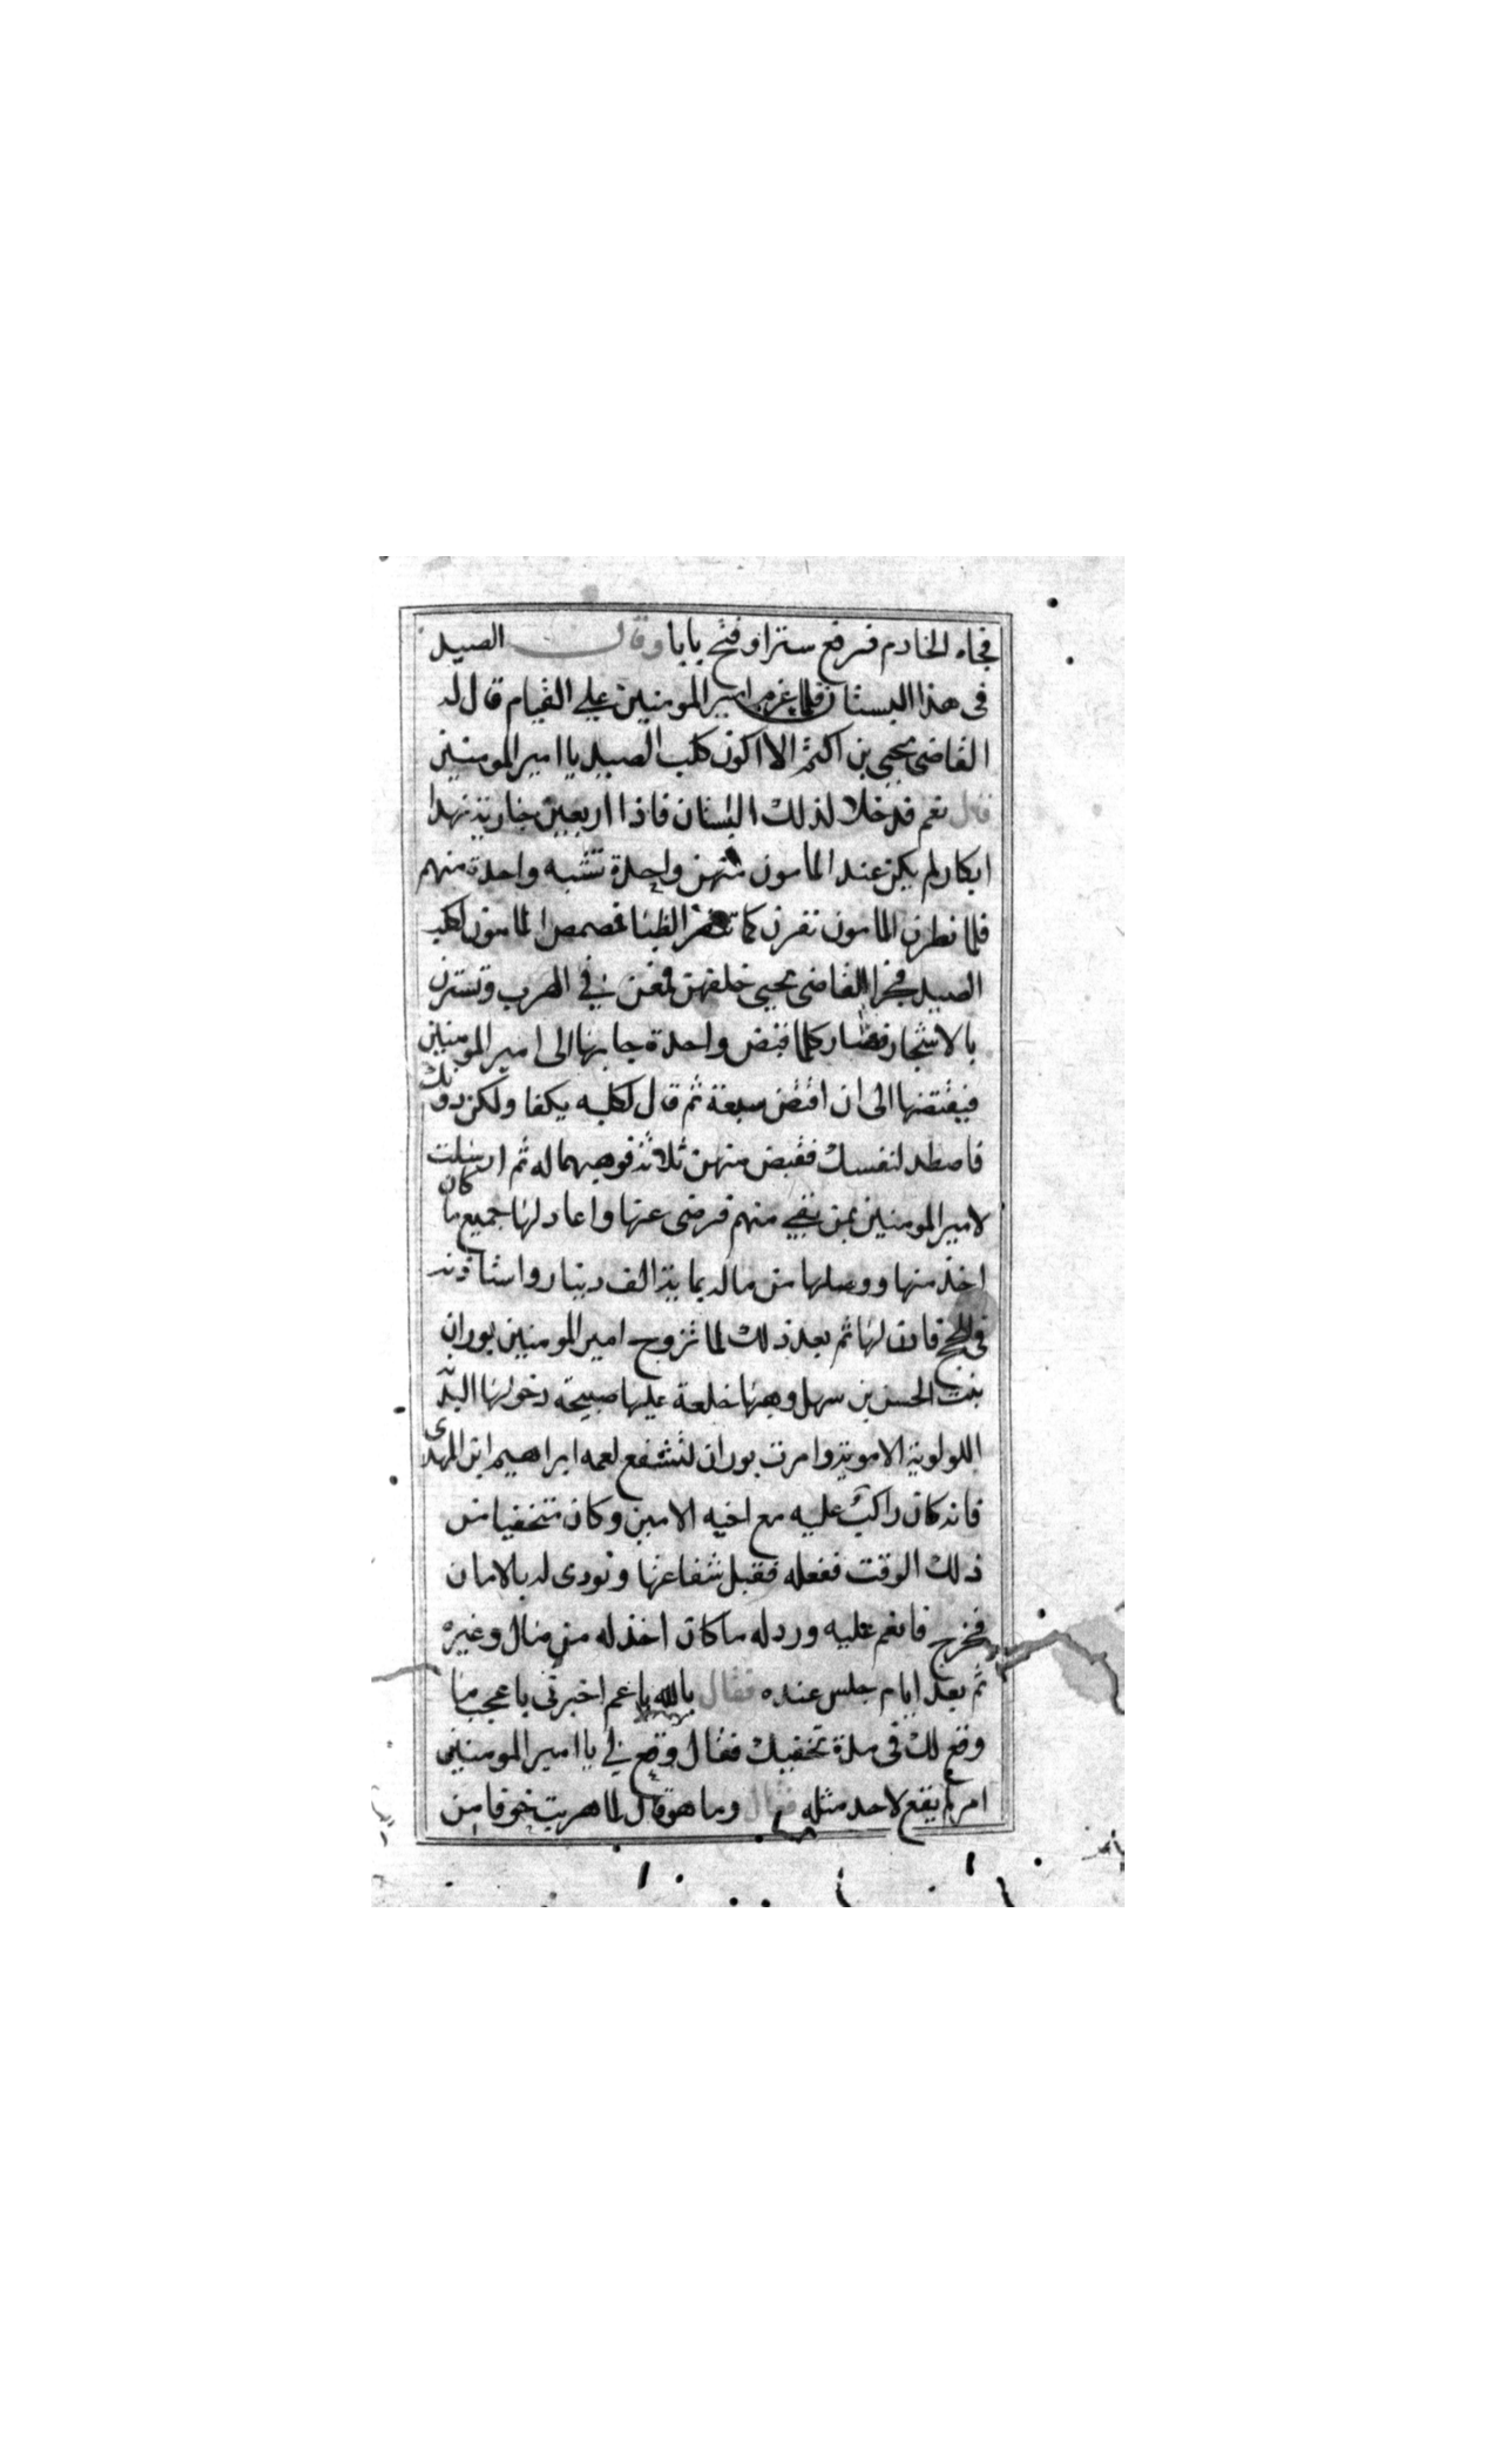 فجاه الخادم فرفع ستراوفتح باباوقال الصيد
فى هذا البستان فلما عزم امير المومنين على القيام قال له
القاضى يحيى بن اكثم الا اكون كلب الصيد يا امير المومنين
قال نعم فدخلا لذلك البستان فاذا اربعين جارية نهدا
ابكار لم يكن عند المامون منهن واحدة تشبه واحدة منهم
فلما نظرن المامون نفرن كما تنفر الظبا المامون لكلبه
الصيد فجرا القاضى يحيى خلفهن فى الهرب وتسترن
بالاشجار فصار كلما قبض واحدة جابها الى امير المومنين
فيفتضها الى ان افتض سبعة ثم قال لكلبه يكفا ولكن دونك
فاصطد لنفسك فقبض منهن ثلاثة فوهبهما له ثم ارسلت
لامير المومنين بمن بقي منهم فرضى عنها واعاد لها جميع ما كان
اخذ منها ووصلها من ماله بماية الف دينار واستاذنه
فى الحج فاذن لها ثم بعد ذلك لما تزوج امير المومنين بوران
بنت الحسن بن سهل وهبها خلعة عليها صبيحة دخولها البدنة
اللولوية الاموية وامرت بوران لتشفع لعمه ابراهيم ابن المهدى
فانه كان راكب عليه مع اخيه الامين وكان متخفيا من
ذلك الوقت ففعله فقبل شفاعتها ونودى له بالامان
فخرج فانعم عليه ورد له ما كان اخذ له من مال وغيره
ثم بعد ايام جلس عنده فقال بالله يا عم اخبرنى باعجب ما
وقع لك فى مدة تخفيك فقال وقع لي يا امير المومنين
امر لم يقع لاحد مثله فقال وما هو قال لما هربت خوفا من